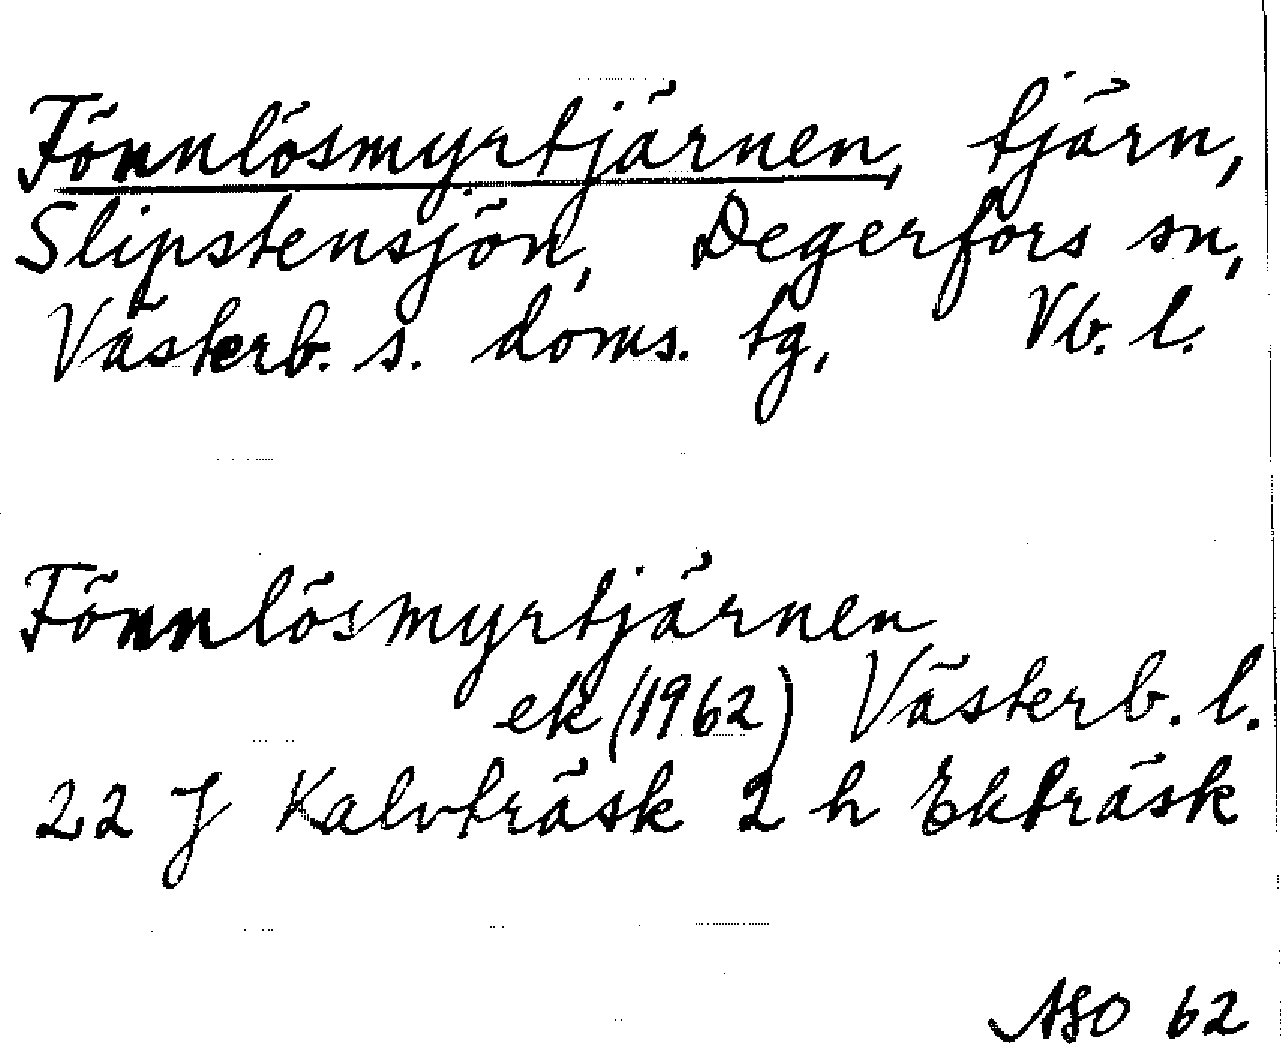 Fönnlösmyrtjärnen, tjärn,
Slipstensjön, Degerfors sn,
Västerb. s. doms. tg, Vb. l.
Fönnlösmyrtjärnen
ek (1962) Västerb. l.
22 J Kalvträsk 2 h Ekträsk
ASO 62